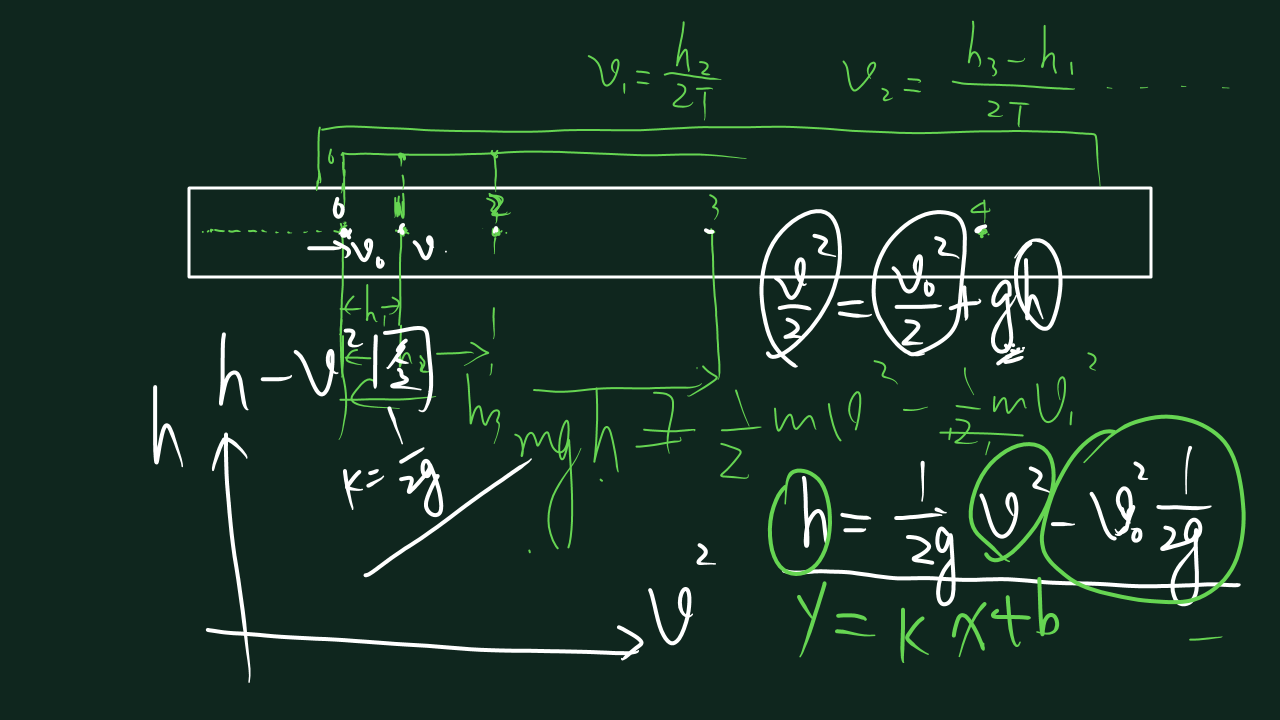 v₁ = h₂/2T    v₂ = (h₃ - h₁)/2T - - - -
0
0 1 2 3 4
v₀ v
h₁
v²/2 = v₀²/2 + gh
h - v²
h₂
h₃
h
mgh = 1/2 mv² - 1/2 mv₁²
k = 1/2g
h = 1/2g v² - v₀² 1/2g
y = kx + b
v²